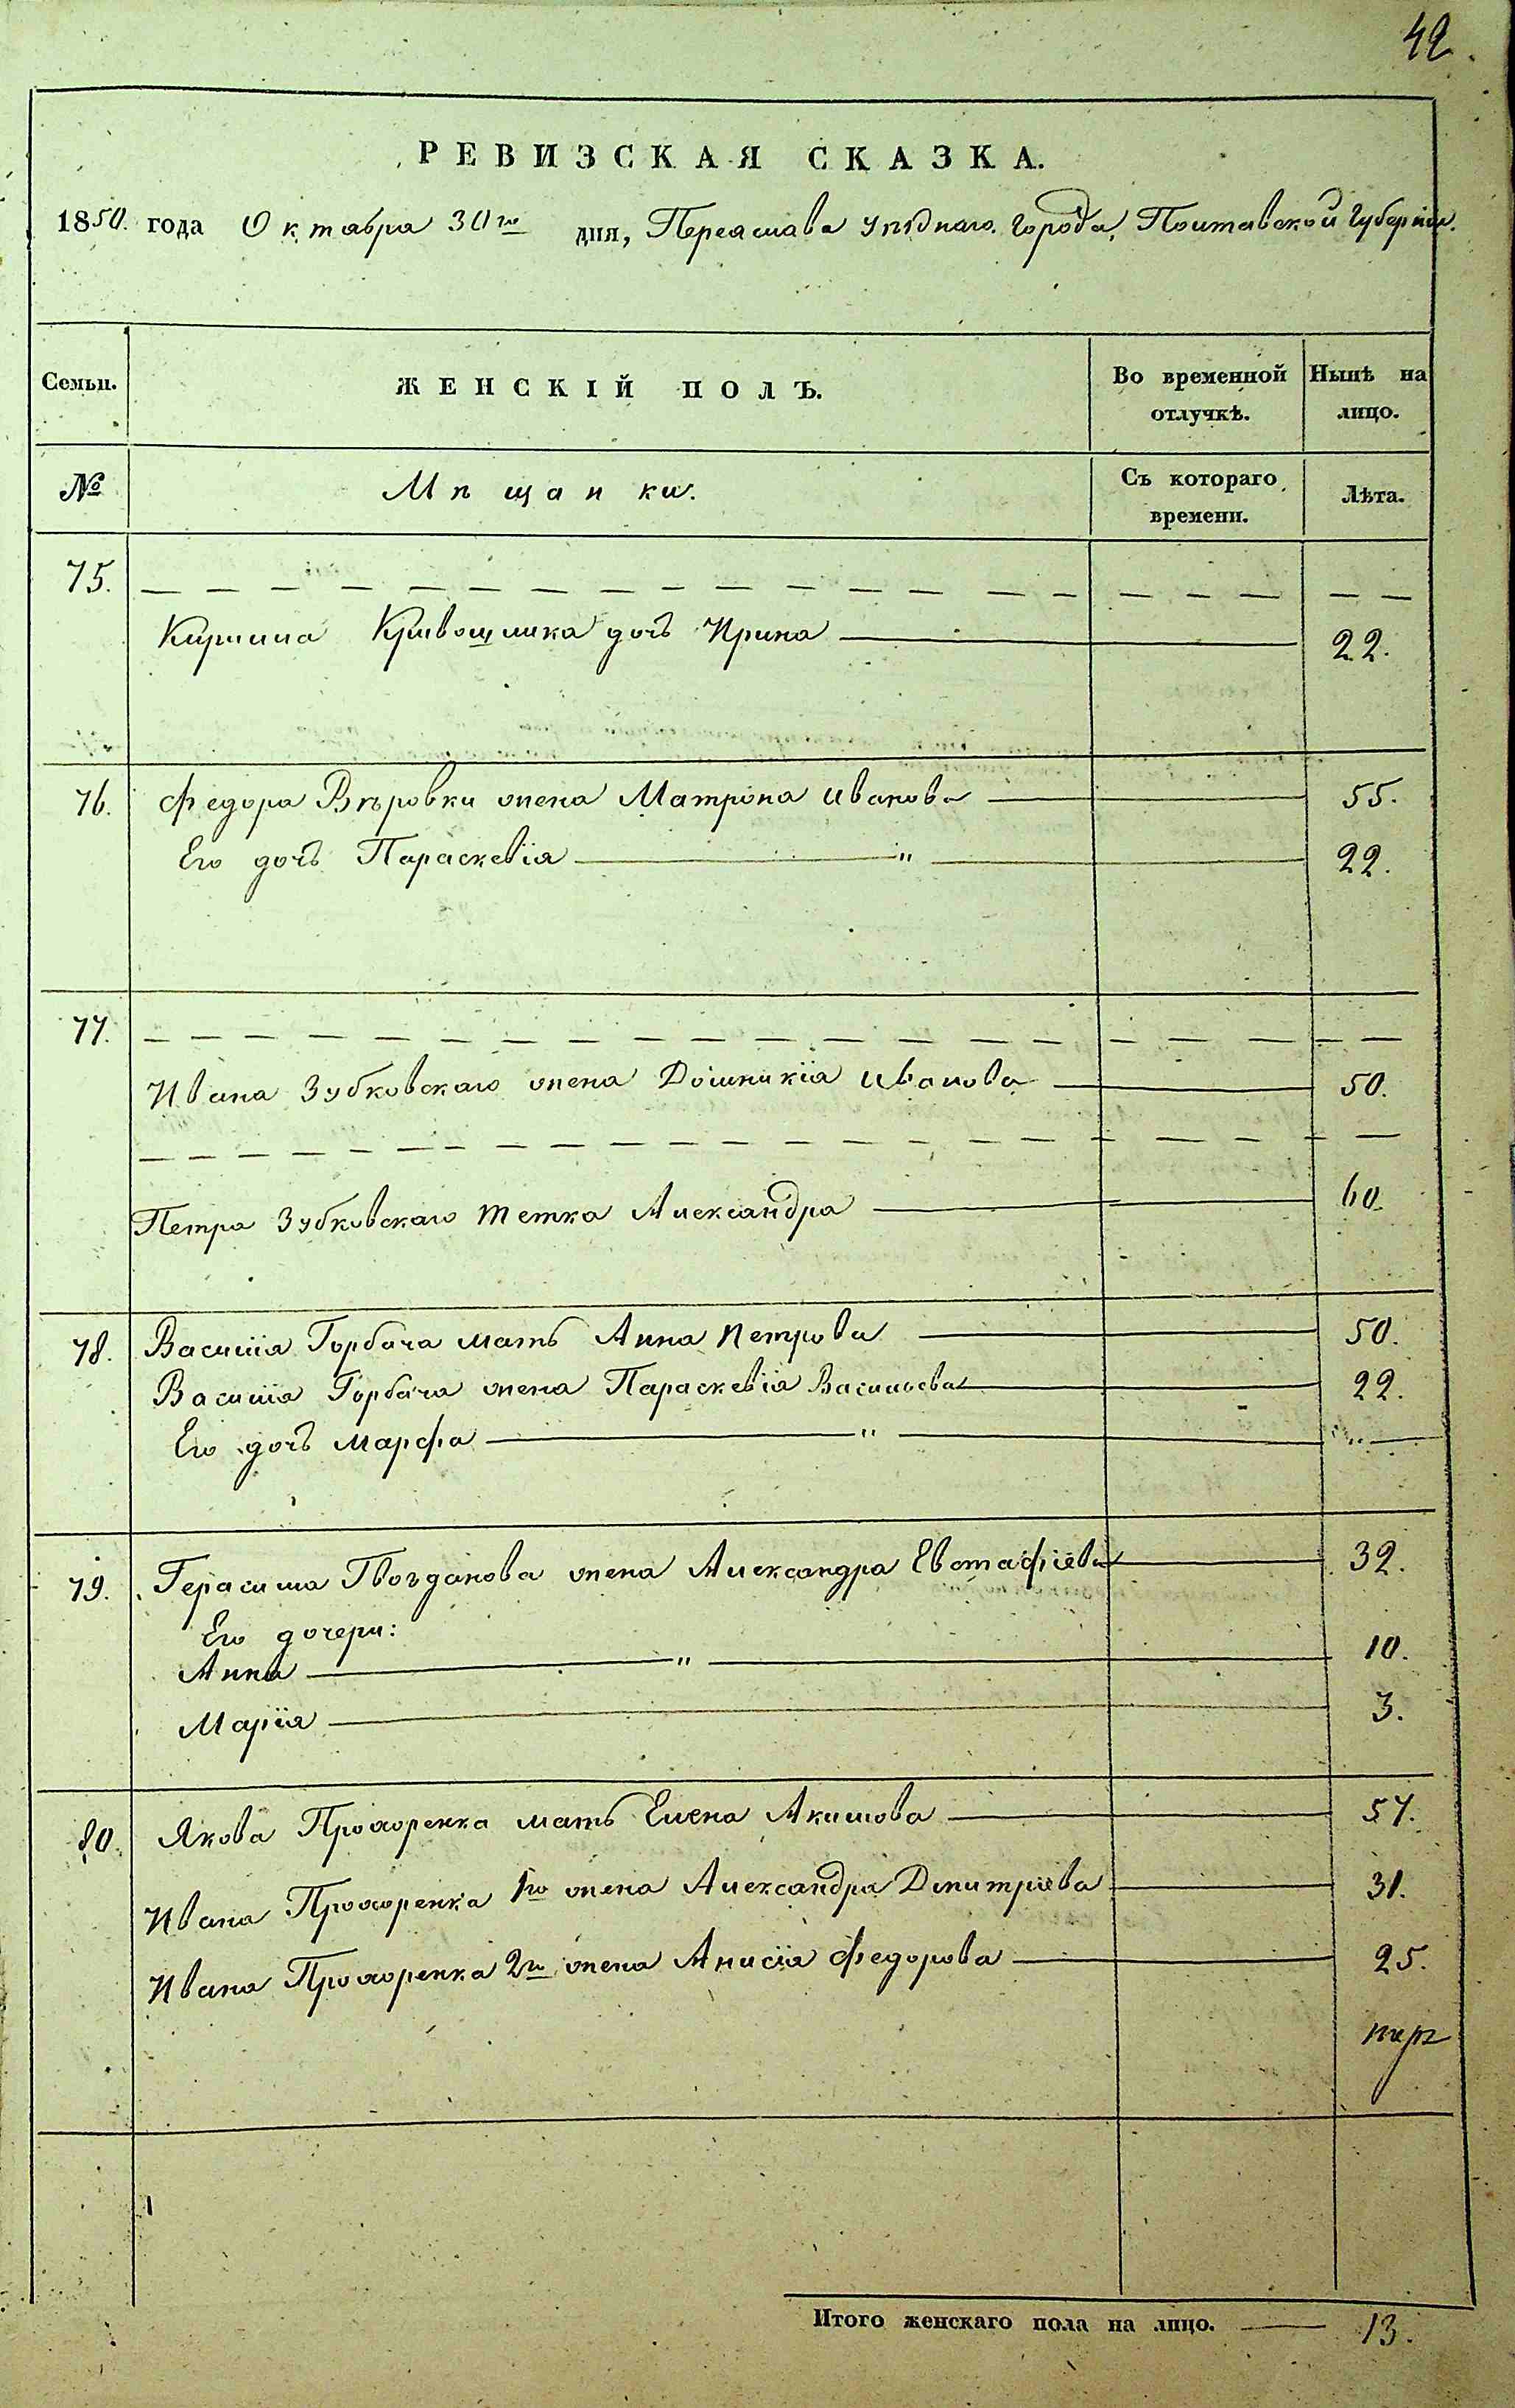 42.
РЕВИЗСКАЯ СКАЗКА.
1850. года Октября 30го дня, Переяслава уѣзднаго города, Полтавской Губерніи.
Семьи. ЖЕНСКІЙ ПОЛЪ. Во временной отлучкѣ. Нынѣ на лицо.
№ Мѣщанки. Съ котораго времени. Лѣта.
75. — — — — — —
Кирила Кривошлика дочь Ирина — 22.
76. Федора Вѣровки жена Матрона Иванова — 55.
Его дочь Параскевія — " — 22.
77. — — — — — —
Ивана Зубковскаго жена Домникія Иванова — 50.
— — — — — —
Петра Зубковскаго тетка Александра — 60.
78. Василія Горбача мать Анна Петрова — 50.
Василія Горбача жена Параскевія Васильева — 22.
Его дочь Марфа — " —
79. Герасима Гвозданова жена Александра Евстафіева — 32.
Его дочери:
Анна — " — 10.
Марія — 3.
80. Якова Прохоренка мать Елена Акимова — 57.
Ивана Прохоренка 1го жена Александра Дмитріева — 31.
Ивана Прохоренка 2го жена Анисія Федорова — 25.
Итого женскаго пола на лицо. — 13.